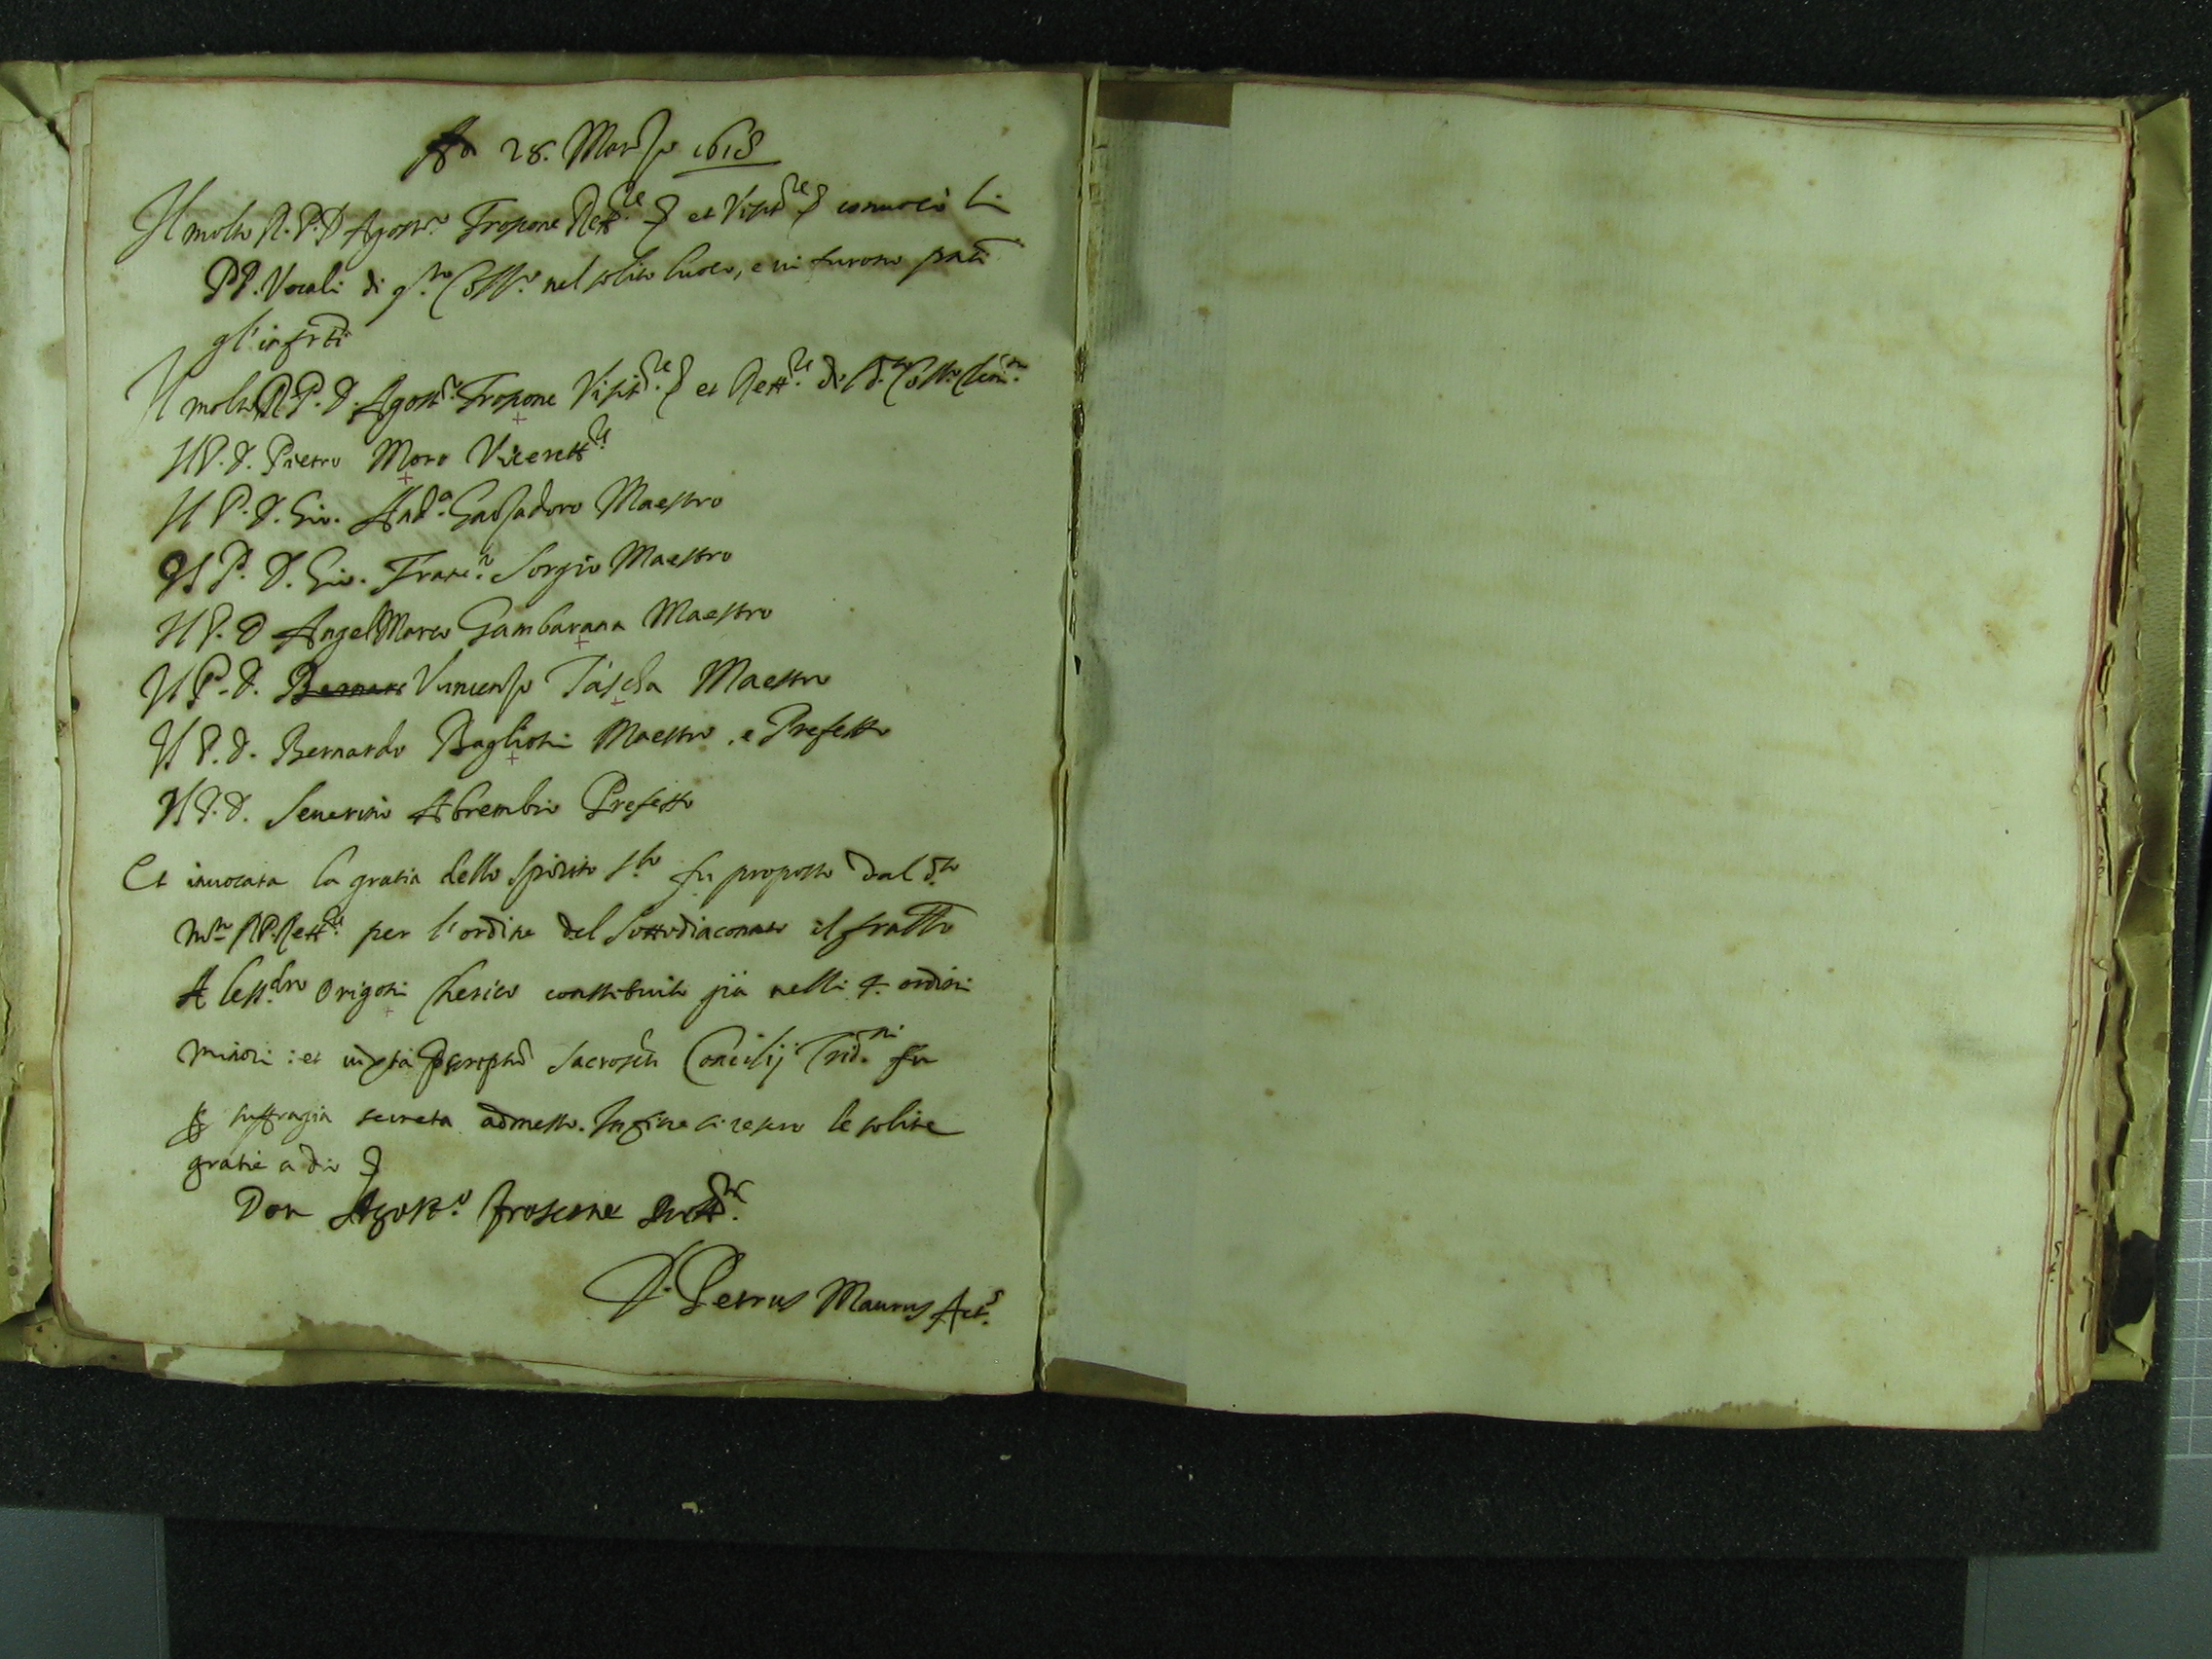 A di 28. Marzo 1618
Il molto R. P. D. Agost.o Froscone Rett.re et Visit.re convocò li
PP. Vocali di q.to Coll.o nel solito luoco, e vi furono p̃nti
gl'infr̃ti
Il molto R. P. D. Agost.o Froscone Visit.re et Rett.re di d.to Coll.o Clem.no
Il P. D. Pietro Moro Vicerett.re
Il P. D. Gio. And.a Gazzadoro Maestro
Il P. D. Gio. Franc.o Sorgio Maestro
Il P. D. Angel Marco Gambarana Maestro
Il P. D. Vincenzo Tascha Maestro
Il P. D. Bernardo Baglioni Maestro, e Prefetto
Il P. D. Severino Abrembio Prefetto
Et invocata la gratia dello Spirito S.to fu proposto dal d.to
m.to R. P. Rett.re per l'ordine del Sottodiaconato il fratello
Aless.dro Origoni cherico constituito già nelli 4. ordini
minori: et iuxta Sacros.ti Concilij Trid.ni fu
suffragia secreta admesso. In fine si resero le solite
gratie a Dio
Don Agost.o froscone Rett.re
D. Petrus Maurus Act.s